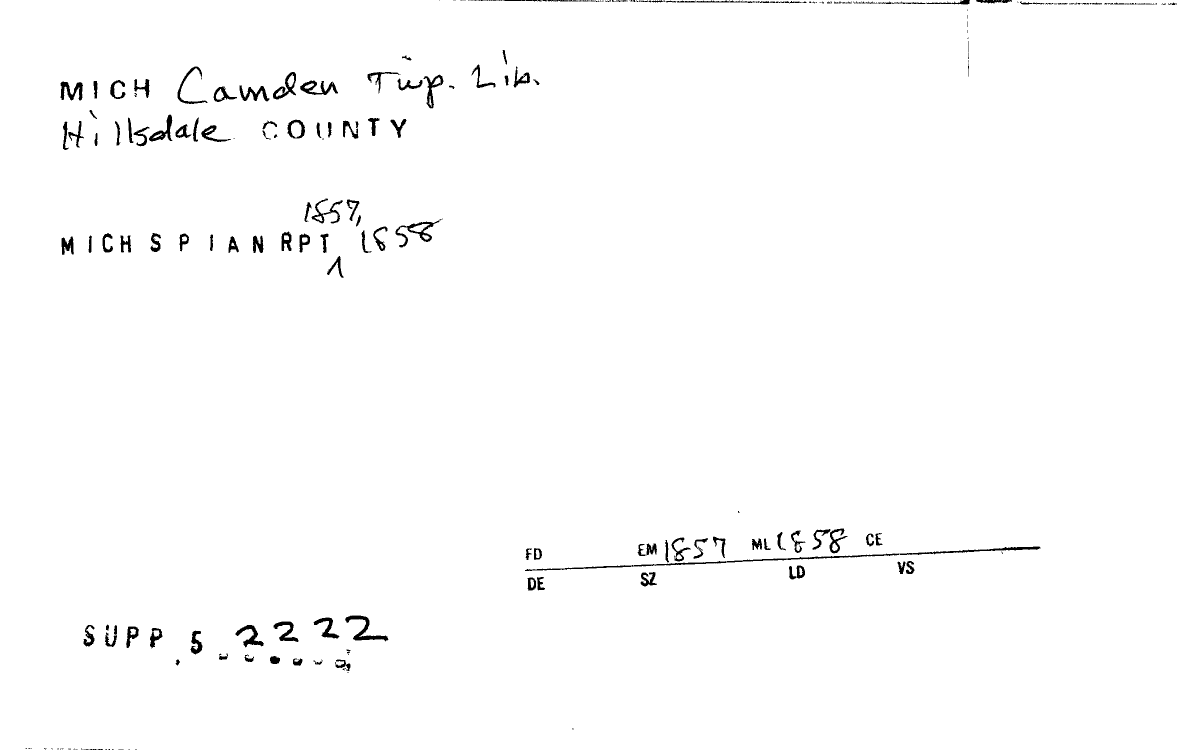 MICH Camden Twp. Lib.
Hillsdale COUNTY
1857,
MICH S P I A N RPT ^ 1858
FD EM 1857 ML 1858 CE
DE SZ LD VS
SUPP. 5 2222